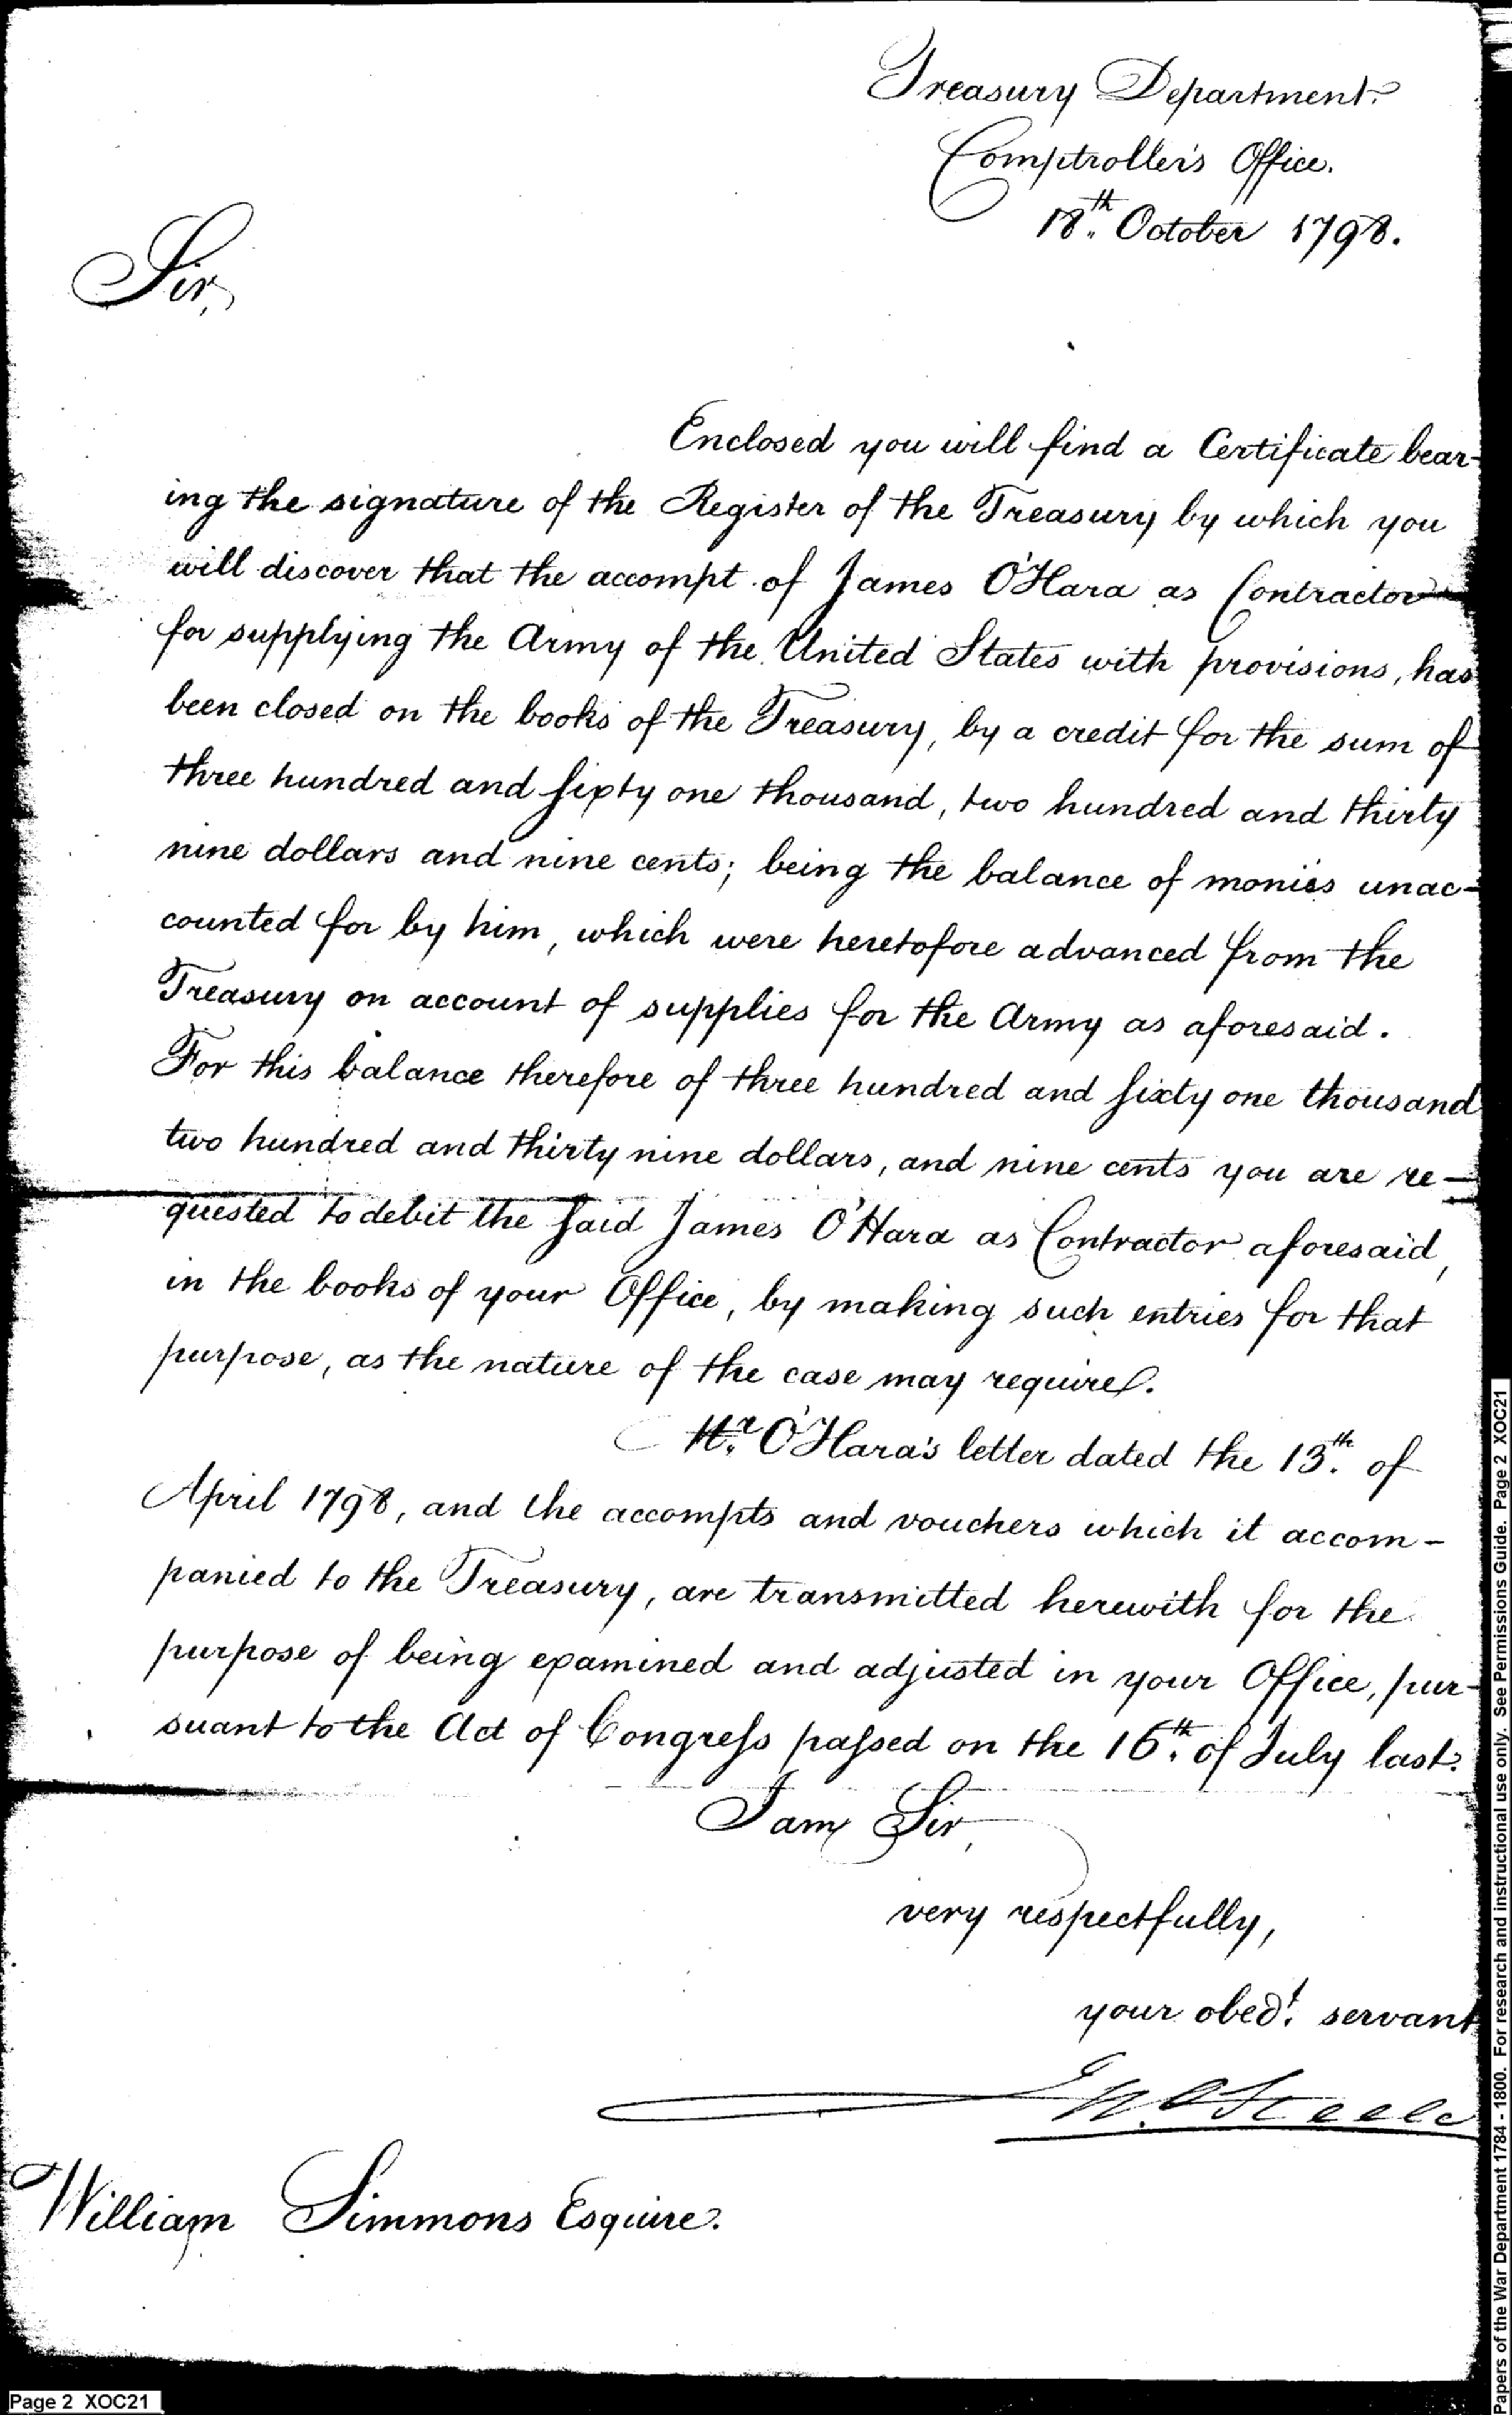 Treasury Department.
Comptroller's Office.
18th. October 1798.
Sir,
Enclosed you will find a Certificate bear-
ing the signature of the Register of the Treasury by which you
will discover that the accompt of James O'Hara as Contractor
for supplying the Army of the United States with provisions, has
been closed on the books of the Treasury, by a credit for the sum of
three hundred and sixty one thousand, two hundred and thirty
nine dollars and nine cents; being the balance of monies unac-
counted for by him, which were heretofore advanced from the
Treasury on account of supplies for the Army as aforesaid.
For this balance therefore of three hundred and sixty one thousand
two hundred and thirty nine dollars, and nine cents you are re-
quested to debit the said James O'Hara as Contractor aforesaid,
in the books of your Office, by making such entries for that
purpose, as the nature of the case may require.
Mr. O'Hara's letter dated the 13th. of
April 1798, and the accompts and vouchers which it accom-
panied to the Treasury, are transmitted herewith for the
purpose of being examined and adjusted in your Office, pur-
suant to the Act of Congress passed on the 16th. of July last.
I am Sir,
very respectfully,
your obedt. servant
Jno. Steele
William Simmons Esquire.
Page 2 XOC21
Papers of the War Department 1784 - 1800. For research and instructional use only. See Permissions Guide. Page 2 XOC21